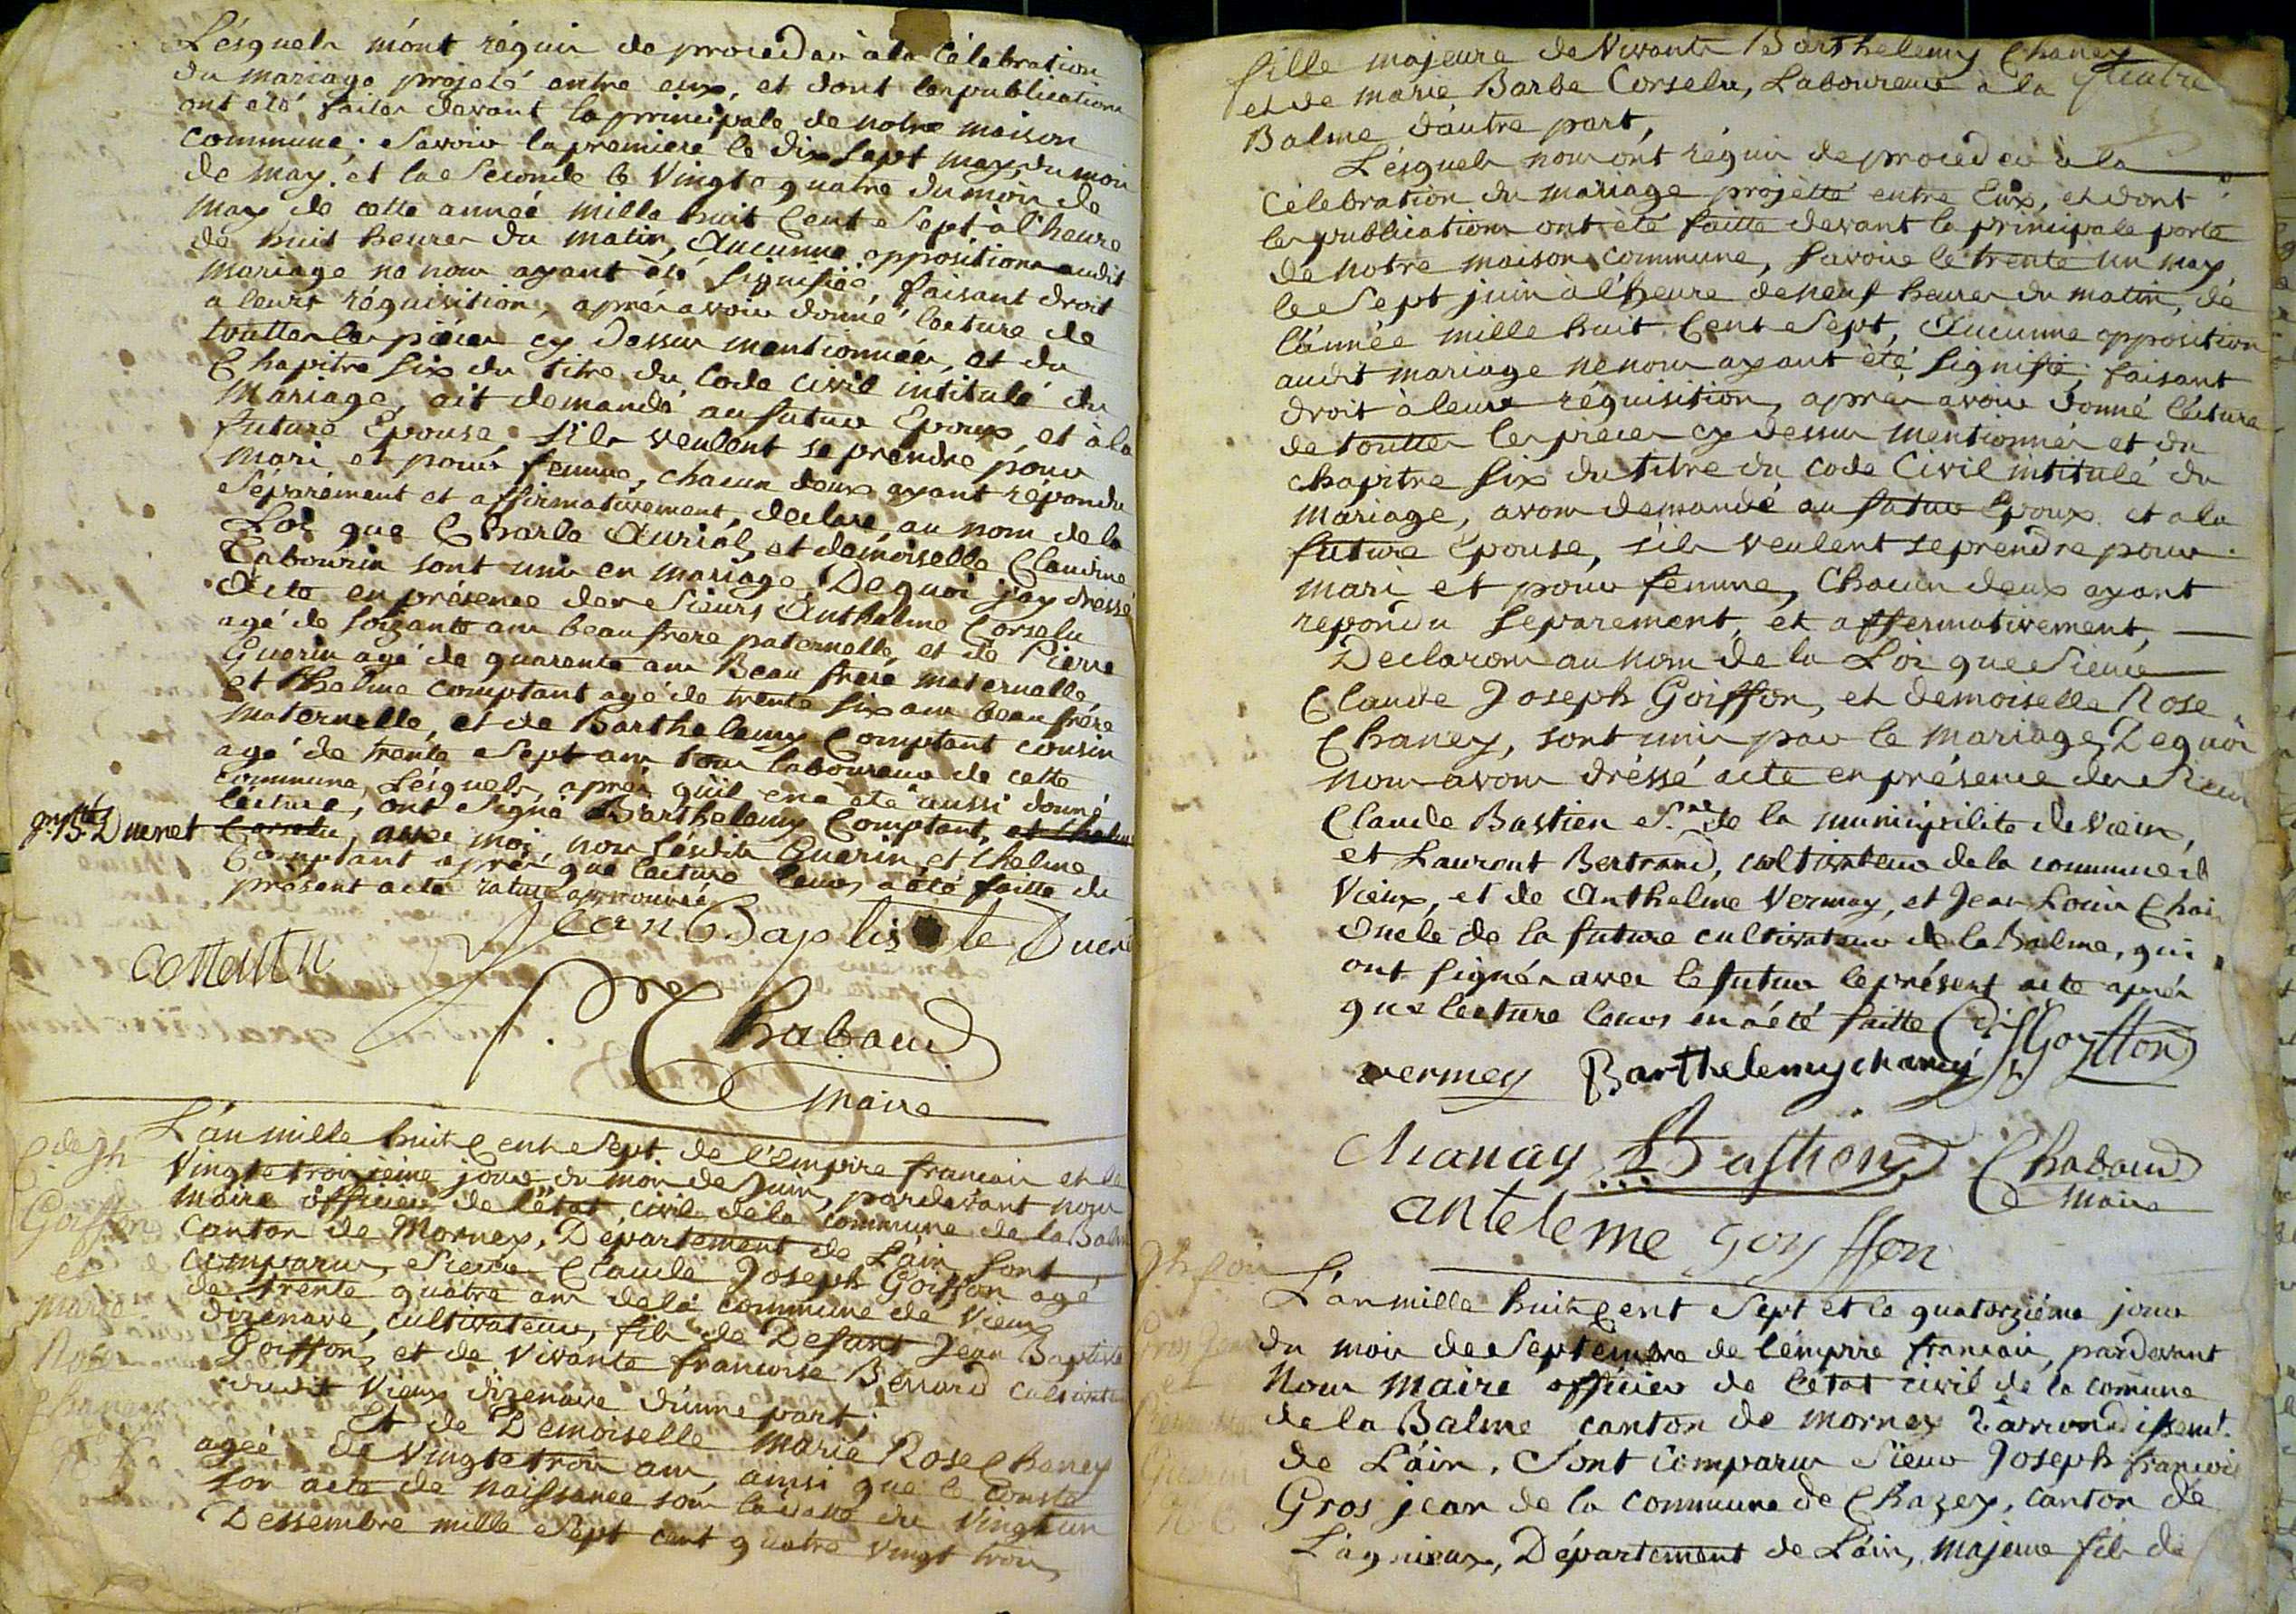 Lésquels m'ont réquis de proceder à la Célébration
du mariage projeté entre eux, et dont les publications
ont été faites devant la principale de notre maison
Commune; Savoir la premiere le dix sept may du mois
de may. et la Seconde le Vingte quatre du mois de
may de cette année mille huit Cent e Sept à l'heure
de huit heures du matin, Aucunne opposition audit
mariage ne nous ayant été signifiée, faisant droit
a leurs réquisition, aprés avoir donné lecture de
touttes les piéces cy dessus mentionnées, et du
Chapitre Six du titre du Code Civil intitulé du
Mariage, ait demandé au futur Epoux, et à la
future Epouse, s'ils veulent se prendre pour
mari et pour femme, chacun deux ayant répondu
Séparément et affirmativement, declare, au nom de la
Loi que Charle Auriol, et demoiselle Claudine
Tabourin sont unis en mariage. De quoi jay dressé
Acte en présence des Sieurs Anthelme Corselu
agé de soixante ans beau frere paternelle, et de Pierre
Guerin agé de quarente ans Beau frere maternelle,
et thelme Comptant agé de trente six ans beau frére
maternelle, et de Barthelemy Comptant cousin
agé de trente e Sept ans tous laboureurs de cette
Commune, Lésquels, aprés qu'il en a été aussi donné
lécture, ont Signé Barthelemy Comptant, et thelme
Jn Bte Ducret Corselu, avec moi, non lésdits Guerin et thelme
Comptant aprés que lecture leurs a été faitte du
présent acte rature approuvée
Jean Baptiste Ducré
Contantn
Chabaud
Maire
L'an mille huit Cent e Sept de l'empire francais et le
Vingte troizieme jour du mois de Juin, pardevant nous
maire officier de l'état civil de la commune de la Balme
Canton de Mornex, Département de L'ain, Sont
Comparus, Sieur Claude Joseph Goiffon agé
de trente quatre ans de la commune de Vieux
dizenave, cultivateur, fils de Defunt Jean Baptiste
Goiffon, et de vivante francoise Berrard cultivateur
dudit Vieux dizenave d'unne part.
Et de Demoiselle Marie Rose Chaney
ageé de Vingte trois ans, ainsi que le Conste
son acte de naissance sous la datte du Vingt un
Dessembre mille e Sept cent quatre Vingt trois
Cde Jh
Goiffon
et
Marie
Rose
Chaney
fille majeure de Vivants Barthelemy Chaney
et de marie Barbe Corselu, Laboureurs à la
Balme d'autre part,
quatre
Lésquels nous ont réquis de proceder à la
Célébration du mariage projetté entre Eux, et dont
les publications ont été faitte devant la principale porte
de notre maison commune, Savoir le trente un may,
le Sept juin à l'heure de neuf heures du matin, de
l'année mille huit Cent e Sept, Aucunne opposition
audit mariage ne nous ayant été signifié; faisant
droit à leurs réquisition, aprés avoir donné lécture
de touttes les piéces cy dessus mentionnés et du
chapitre Six du titre du code Civil intitulé du
mariage, avons demandé au futur Epoux et a la
future Epouse, s'ils veulent se prendre pour
mari et pour femme, Chacun deux ayant
repondu Separement, et affermativement,
Declarons au nom de la Loi que Sieur
Claude Joseph Goiffon, et demoiselle Rose
Chaney, sont unis par le Mariage, De quoi
nous avons dréssé acte en présence des Sieur
Claude Bastien de la municipilite de Vieux,
et Laurent Bertrand, cultivateur de la commune de
Vieux, et de Anthelme Vermey, et Jean Louis Chai
Oncle de la future cultivateur de la Balme, qui
ont signés avec le futur le présent acte aprés
que lécture leurs en a été faitte Goyffon
vermey Barthelemy chaney
Chanay Bastien Chabaud
Maire
anteleme goyffon
L'an mille huit Cent Sept et le quatorziéme jour
du mois de Septembre de l'empire francais, pardevant
Nous Maire officier de l'état civil de la comune
de la Balme canton de Mornex l'arrondissemt.
de L'ain. Sont Comparus Sieur Joseph francois
Gros jean de la Commune de Chazey, canton de
Lagnieux, Département de L'ain, majeur fils de